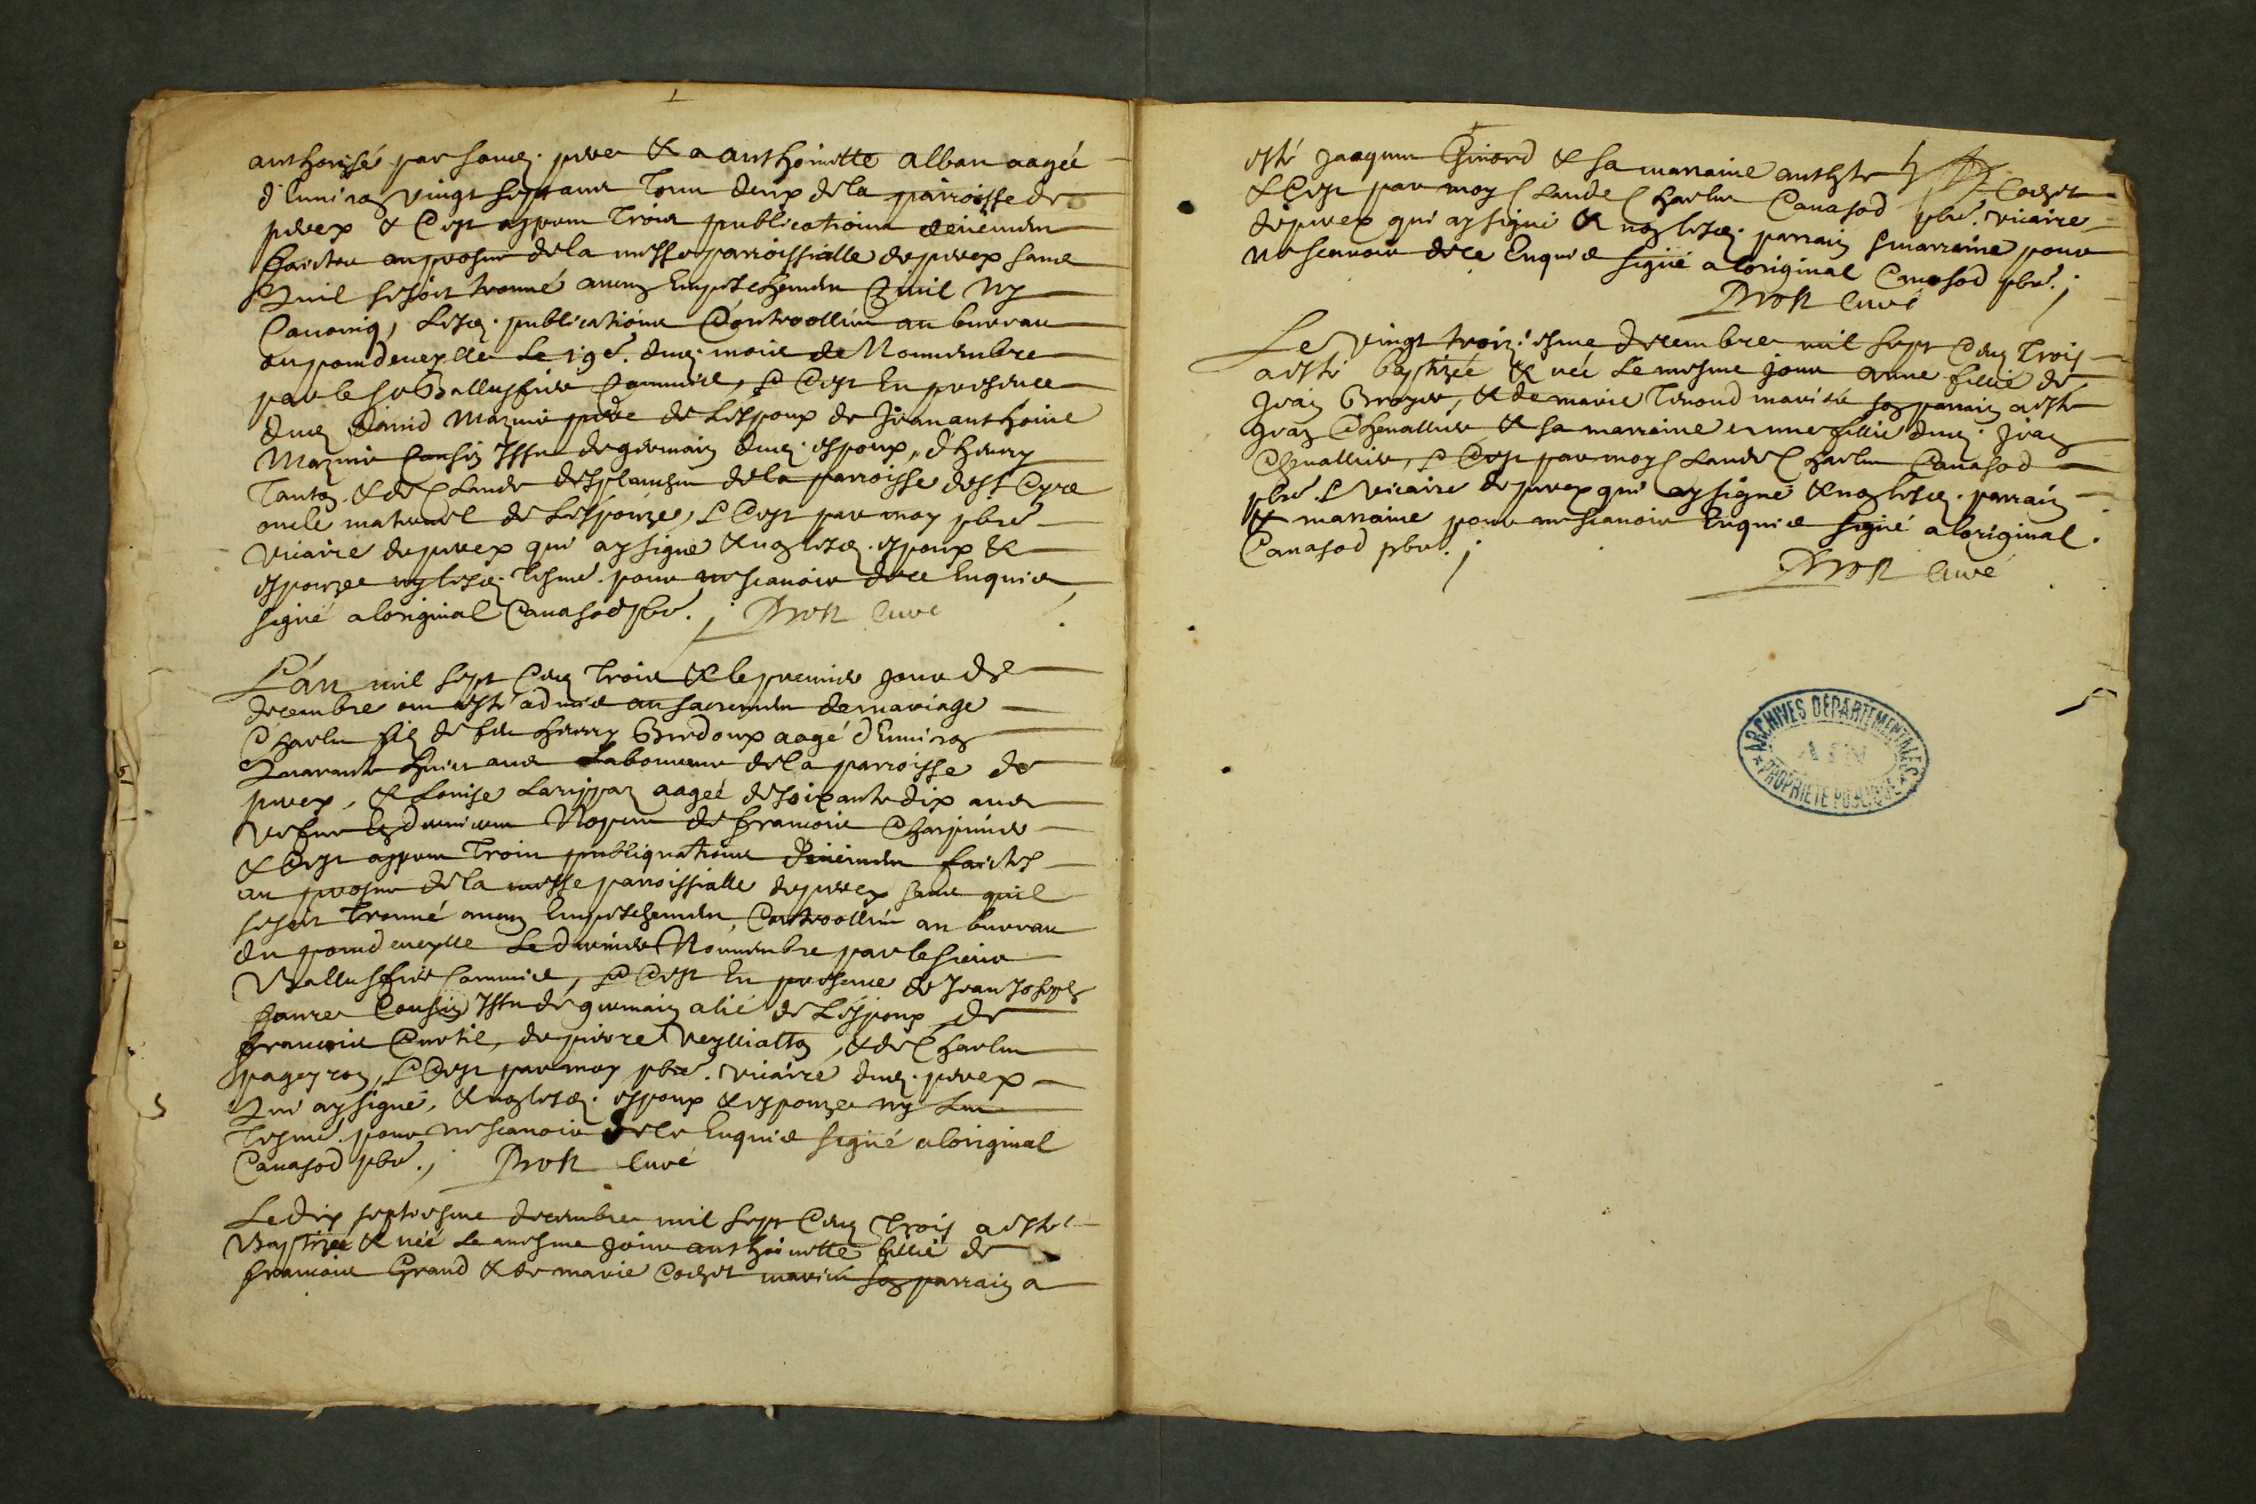 authorisé par sond. pere & a anthoinette alban aagée
d'Environ vingt sept ans tous deux de la parroisse de
perex & C'est appres Trois publications deuement
faictes au prosne de la messe parroissialle de perex sans
Quil se soit trouvé aucun Empeschement Civil Ny
Canoniq, Lesd. publications Controollées au bureau
du pontdeveylle Le 19e. dud. mois de Novembre
par le Sr Ballusfier Commis, & C'est En presence
dud. david pere de L'espoux de Jean anthoine
Cousin Issu de germain dud. espoux, d'henry
Tanton & de Claude desplanches de la parroisse de st Cyre
oncle maternel de L'espouze, & C'est par moy pbre
vicaire de perex qui ay signé & non lesd. espoux &
espouze ny lesd. tesms. pour ne scavoir de ce Enquis
signé a l'original Canasod pbre. / Dron curé
L'an mil sept Cens Trois & le premier jour de
decembre ont esté admis au sacrement de mariage
Charles fils de feu henry Bredoux aagé d'Environ
Quarante huict ans Laboureur de la parroisse de
perex, & Louise aagée de soixante dix ans
vefve En dernieres Nopces de francois
& C'est appres Trois publiquations deuement faictes
au prosne de la messe parroissialle de perex sans quil
se soit Trouvé aucun Empeschement, Controollées au bureau
du pontdeveylle Le dernier Novembre par le sieur
Ballusfier Commis, & C'est En presence de Jean Joseph
favre Cousin Issu de germain alié de L'espoux de
francois Curtil, de pierre veylliatton, & de Charles
pageyron, & C'est par moy pbre. vicaire dud. perex
Qui ay signé, & non lesd. espoux & espouze ny Les
Tesms. pour ne scavoir de ce Enquis signé a loriginal
Canasod pbre. / Dron curé
Le dix septiesme decembre mil sept Cens Trois a esté
Baptizée & née Le mesme jour anthoinette fillie de
francois Grand & de marie Cochet mariés son parrain a
esté Jaaques & sa marraine anthte Cochet
& C'est par moy Claude Charles Canasod pbre. vicaire
de perex qui ay signé & non lesd. parrain & marraine pour
ne scavoir de ce Enquis signé a loriginal Canasod pbre. /
Dron curé
Le vingt troiziesme decembre mil sept Cens Trois
a esté baptizée & née Le mesme jour anne fillie de
Jean Broyer, & de marie Tenoud mariés son parrain a esté
Jean Chevallier & sa marraine anne fillie dud. Jean
Chevallier, & C'est par moy Claude Charles Canasod
pbre. & vicaire de perex qui ay signé & non lesd. parrain
& marraine pour ne scavoir Enquis signé a loriginal.
Canasod pbre. /
Dron curé
ARCHIVES DÉPARTEMENTALES
AIN
PROPRIÉTÉ PUBLIQUE